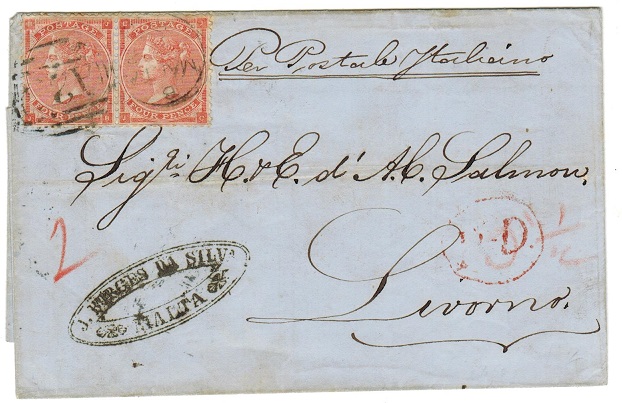 POSTAGE POSTAGE
FOUR PENCE FOUR PENCE
MA
Per Postale Italiano
Sig.ri H. & E. d' A. C. Salmon
2
P.D.
1/2
J. BORGES DA SILVA
MALTA
Livorno.